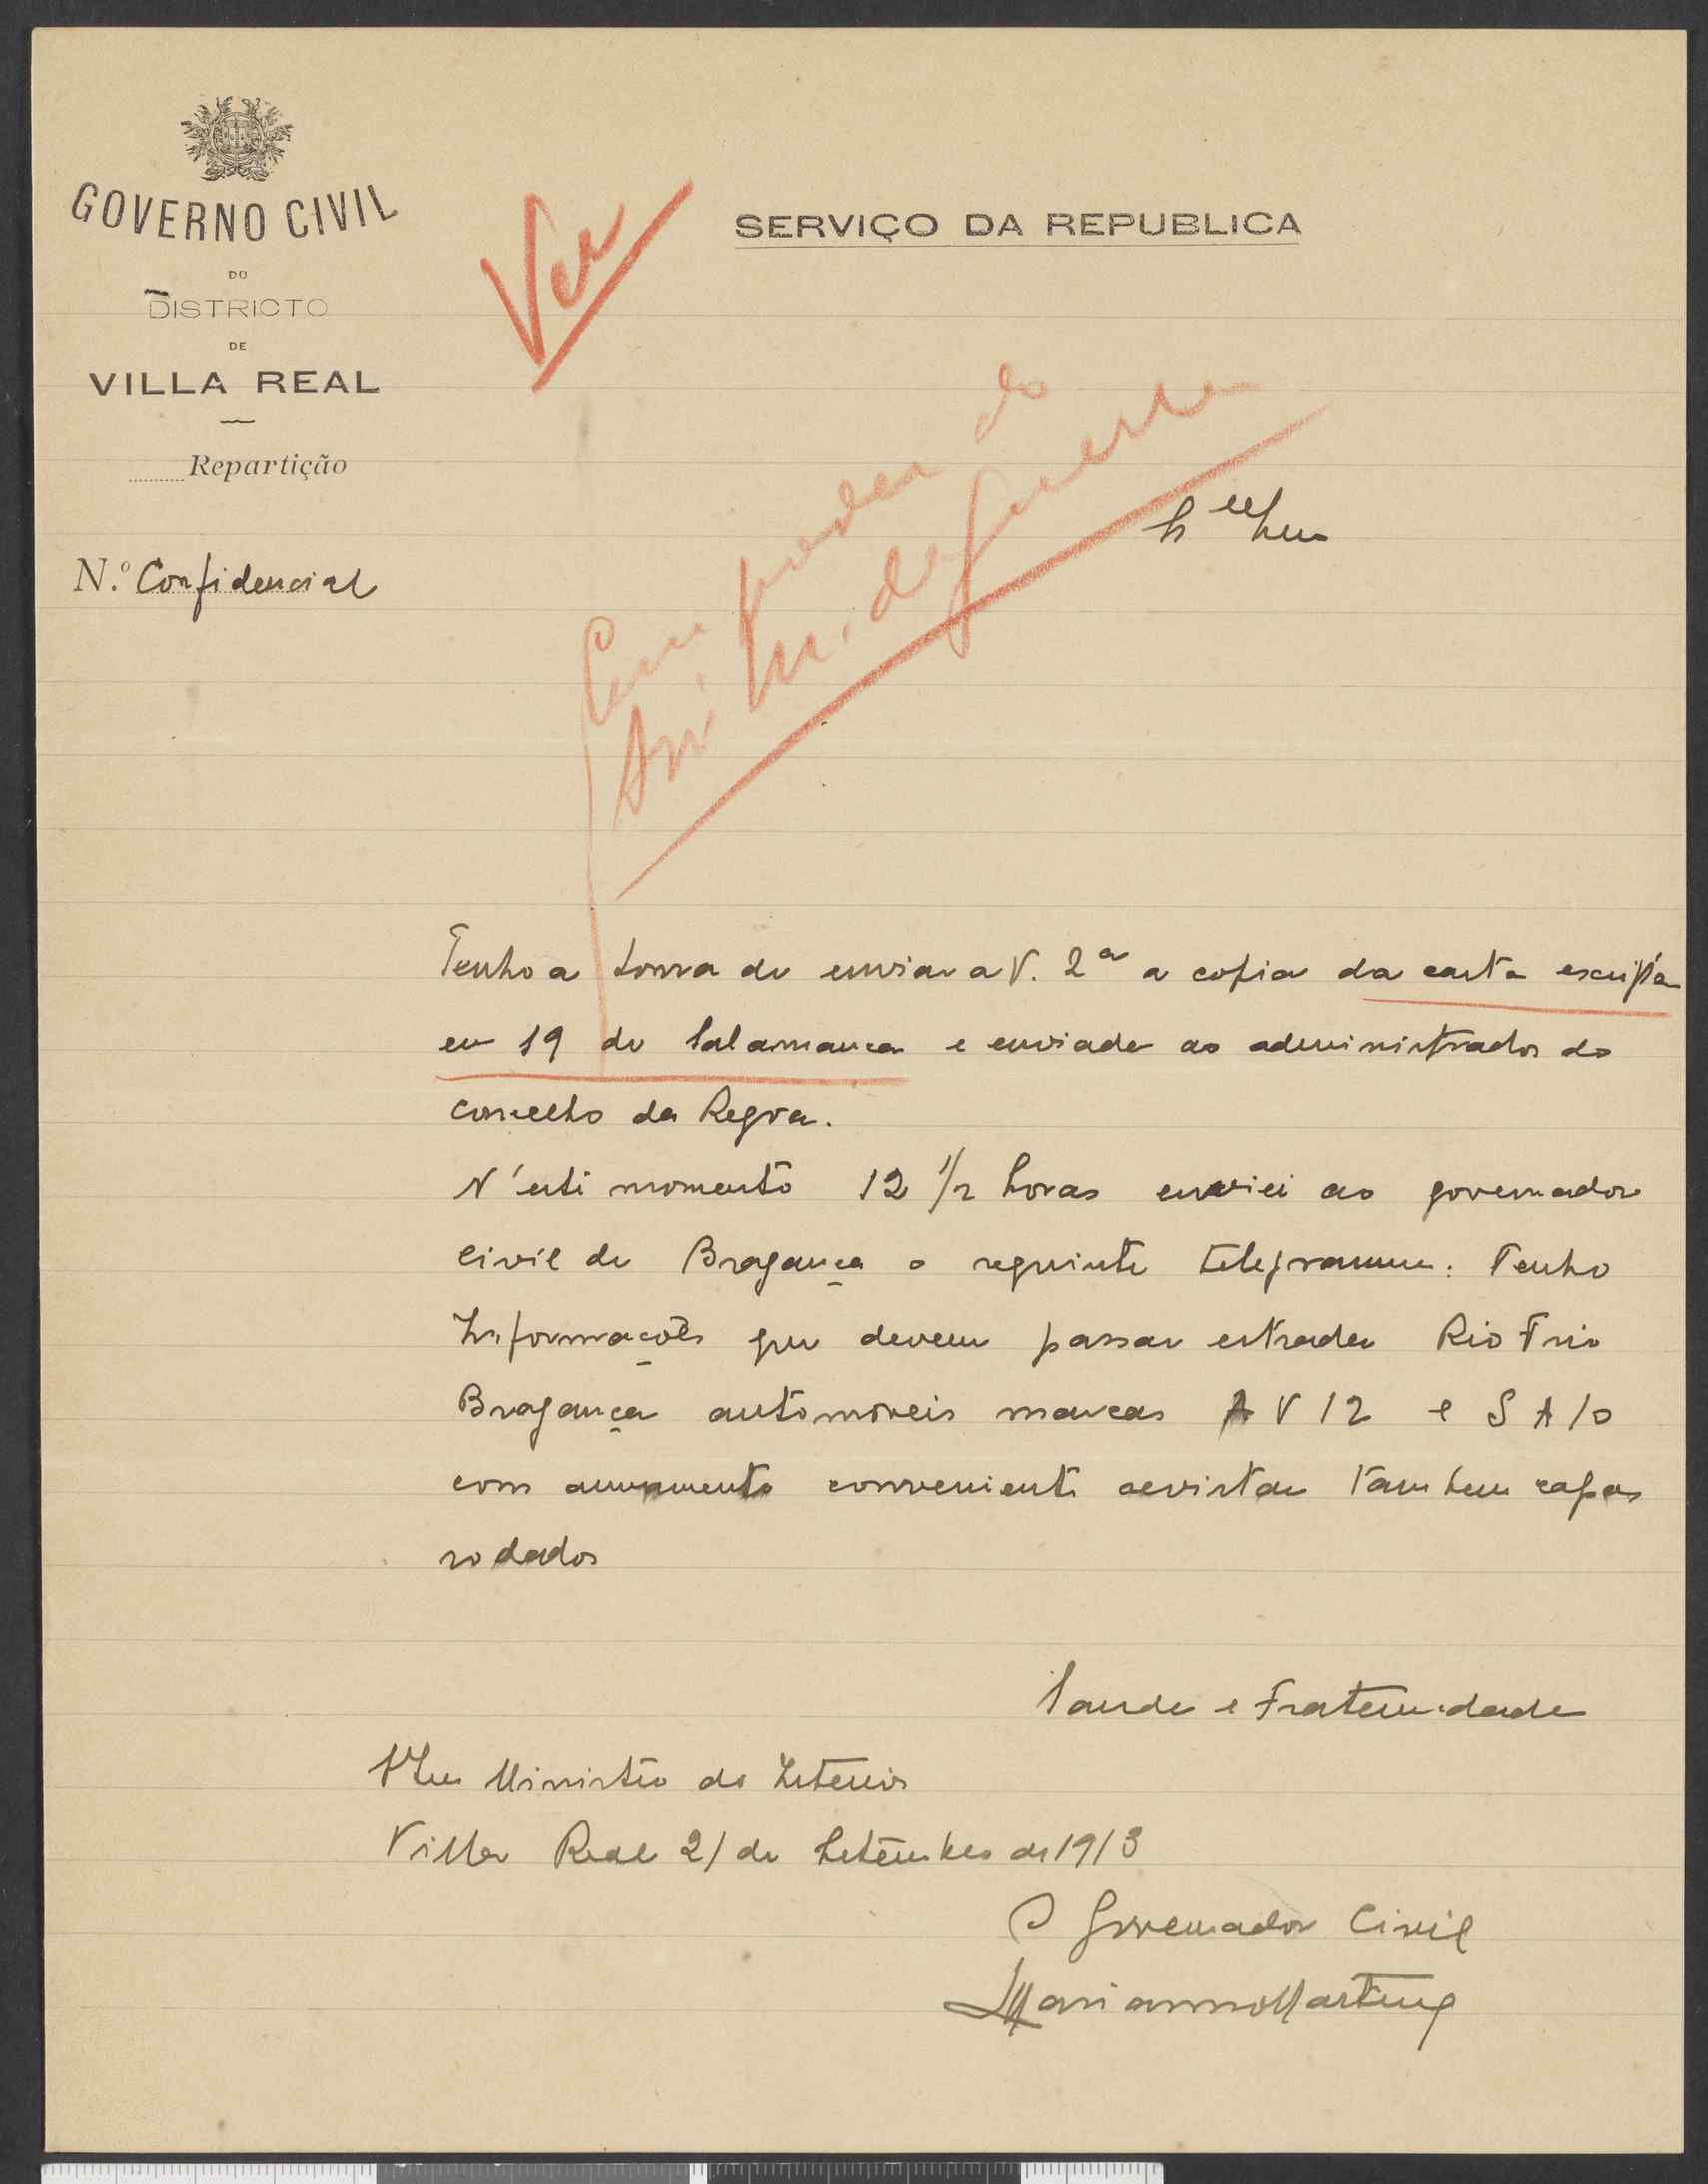 GOVERNO CIVIL
DO
DISTRICTO
DE
VILLA REAL
Repartição
N.º Confidencial
SERVIÇO DA REPUBLICA
Ver
Em poder do
Sr. M. da Guerra
Tenho a honra de enviar a V. Exª a copia da carta escripta
em 19 de Salamanca e enviada ao administrador do
concelho da Regoa.
N'este momento 12 1/2 horas enviei ao governador
civil de Bragança o seguinte telegramma: Tenho
Informações que devem passar estrada Rio Frio
Bragança automoveis marcas AV12 e SA10
com armamento conveniente revistar tambem capas
rodados
Saude e Fraternidade
Ministro do Interior
Villa Real 21 de Setembro de 1913
O Governador Civil
Marianno Martins